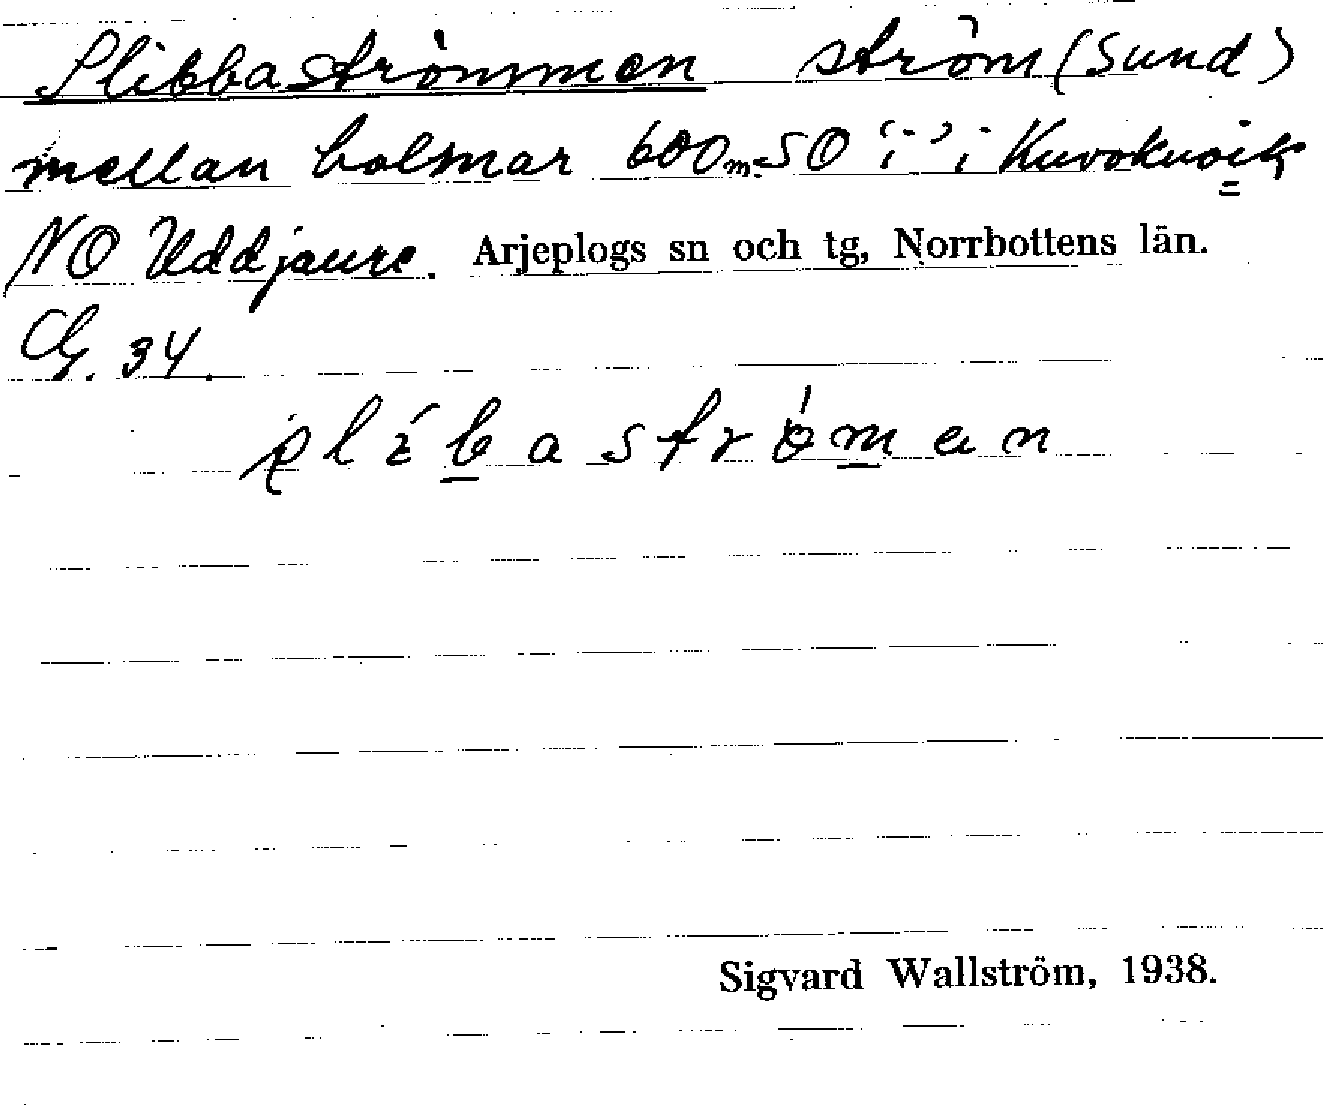 Slibbaströmmen ström (sund)
mellan holmar 600 m SO "i" i Kuvokuvik
NO Uddjaure. Arjeplogs sn och tg, Norrbottens län.
34.
Sigvard Wallström, 1938.